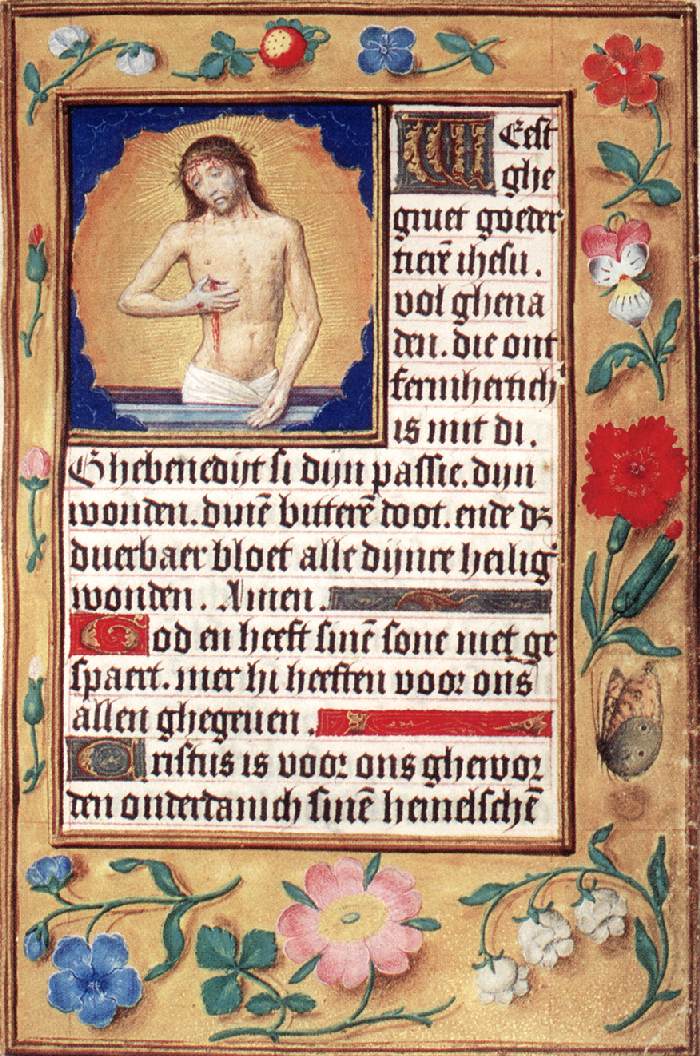 Weest
ghe
gruet goeder
tierē ihesu.
vol ghena
den. die ont
fermhertich
is mit di.
Ghebenedijt si dijn passie. dijn
wonden. dinē bitterē doot. ende dz
duerbaer bloet alle dijnre heilig'
wonden. Amen.
God en heeft sinē sone niet ge
spaert. mer hi heeften voor ons
allen ghegeuen.
Cristus is voor ons ghewor
den onderdanich sinē hemelschē